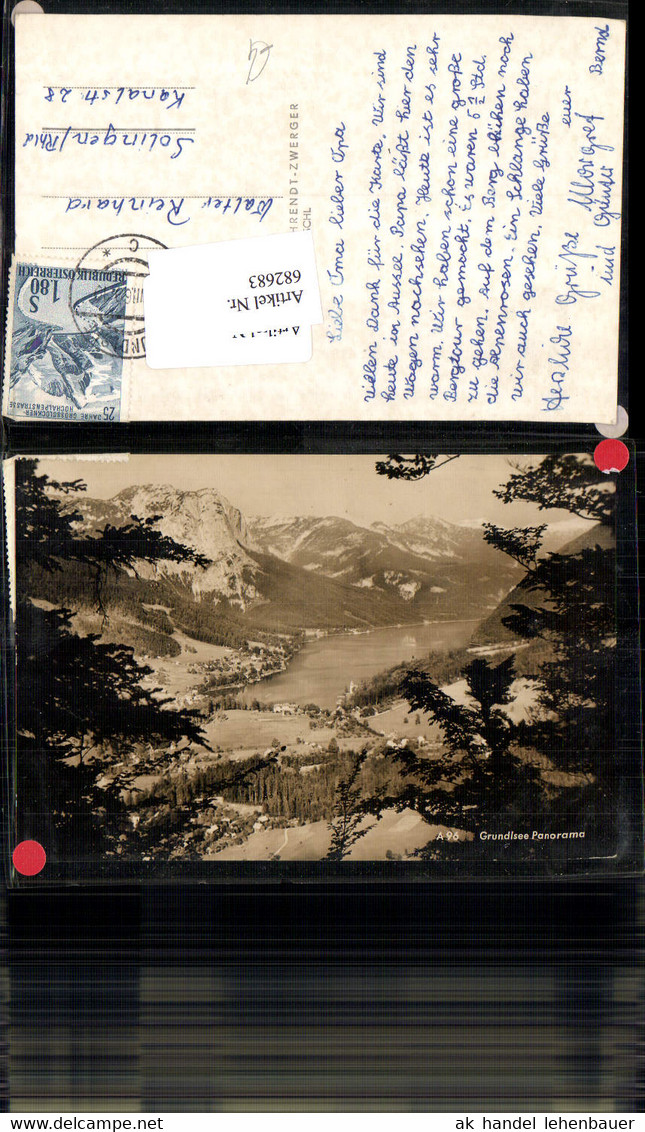 Liebe Oma lieber Opa
Vielen Dank für die Karte. Wir sind
heute in Aussee. Papa läßt hier den
Wagen nachsehen. Heute ist es sehr
warm. Wir haben schon eine große
Bergtour gemacht. Es waren 6 ½ Std.
zu gehen. Auf dem Berg blühen noch
die Alpenrosen. Ein Schlange haben
wir auch gesehen. Viele Grüße
euer
Bernd
Herzliche Grüße
und Günter
HRENDT-ZWERGER
SCHL
Walter Reinhard
Solingen/Rhld
Kanalstr. 28
Artikel Nr.
682683
REPUBLIK ÖSTERREICH
S 1.80
25 JAHRE GROSSGLOCKNER
HOCHALPENSTRASSE
A 96 Grundlsee Panorama
ak handel lehenbauer